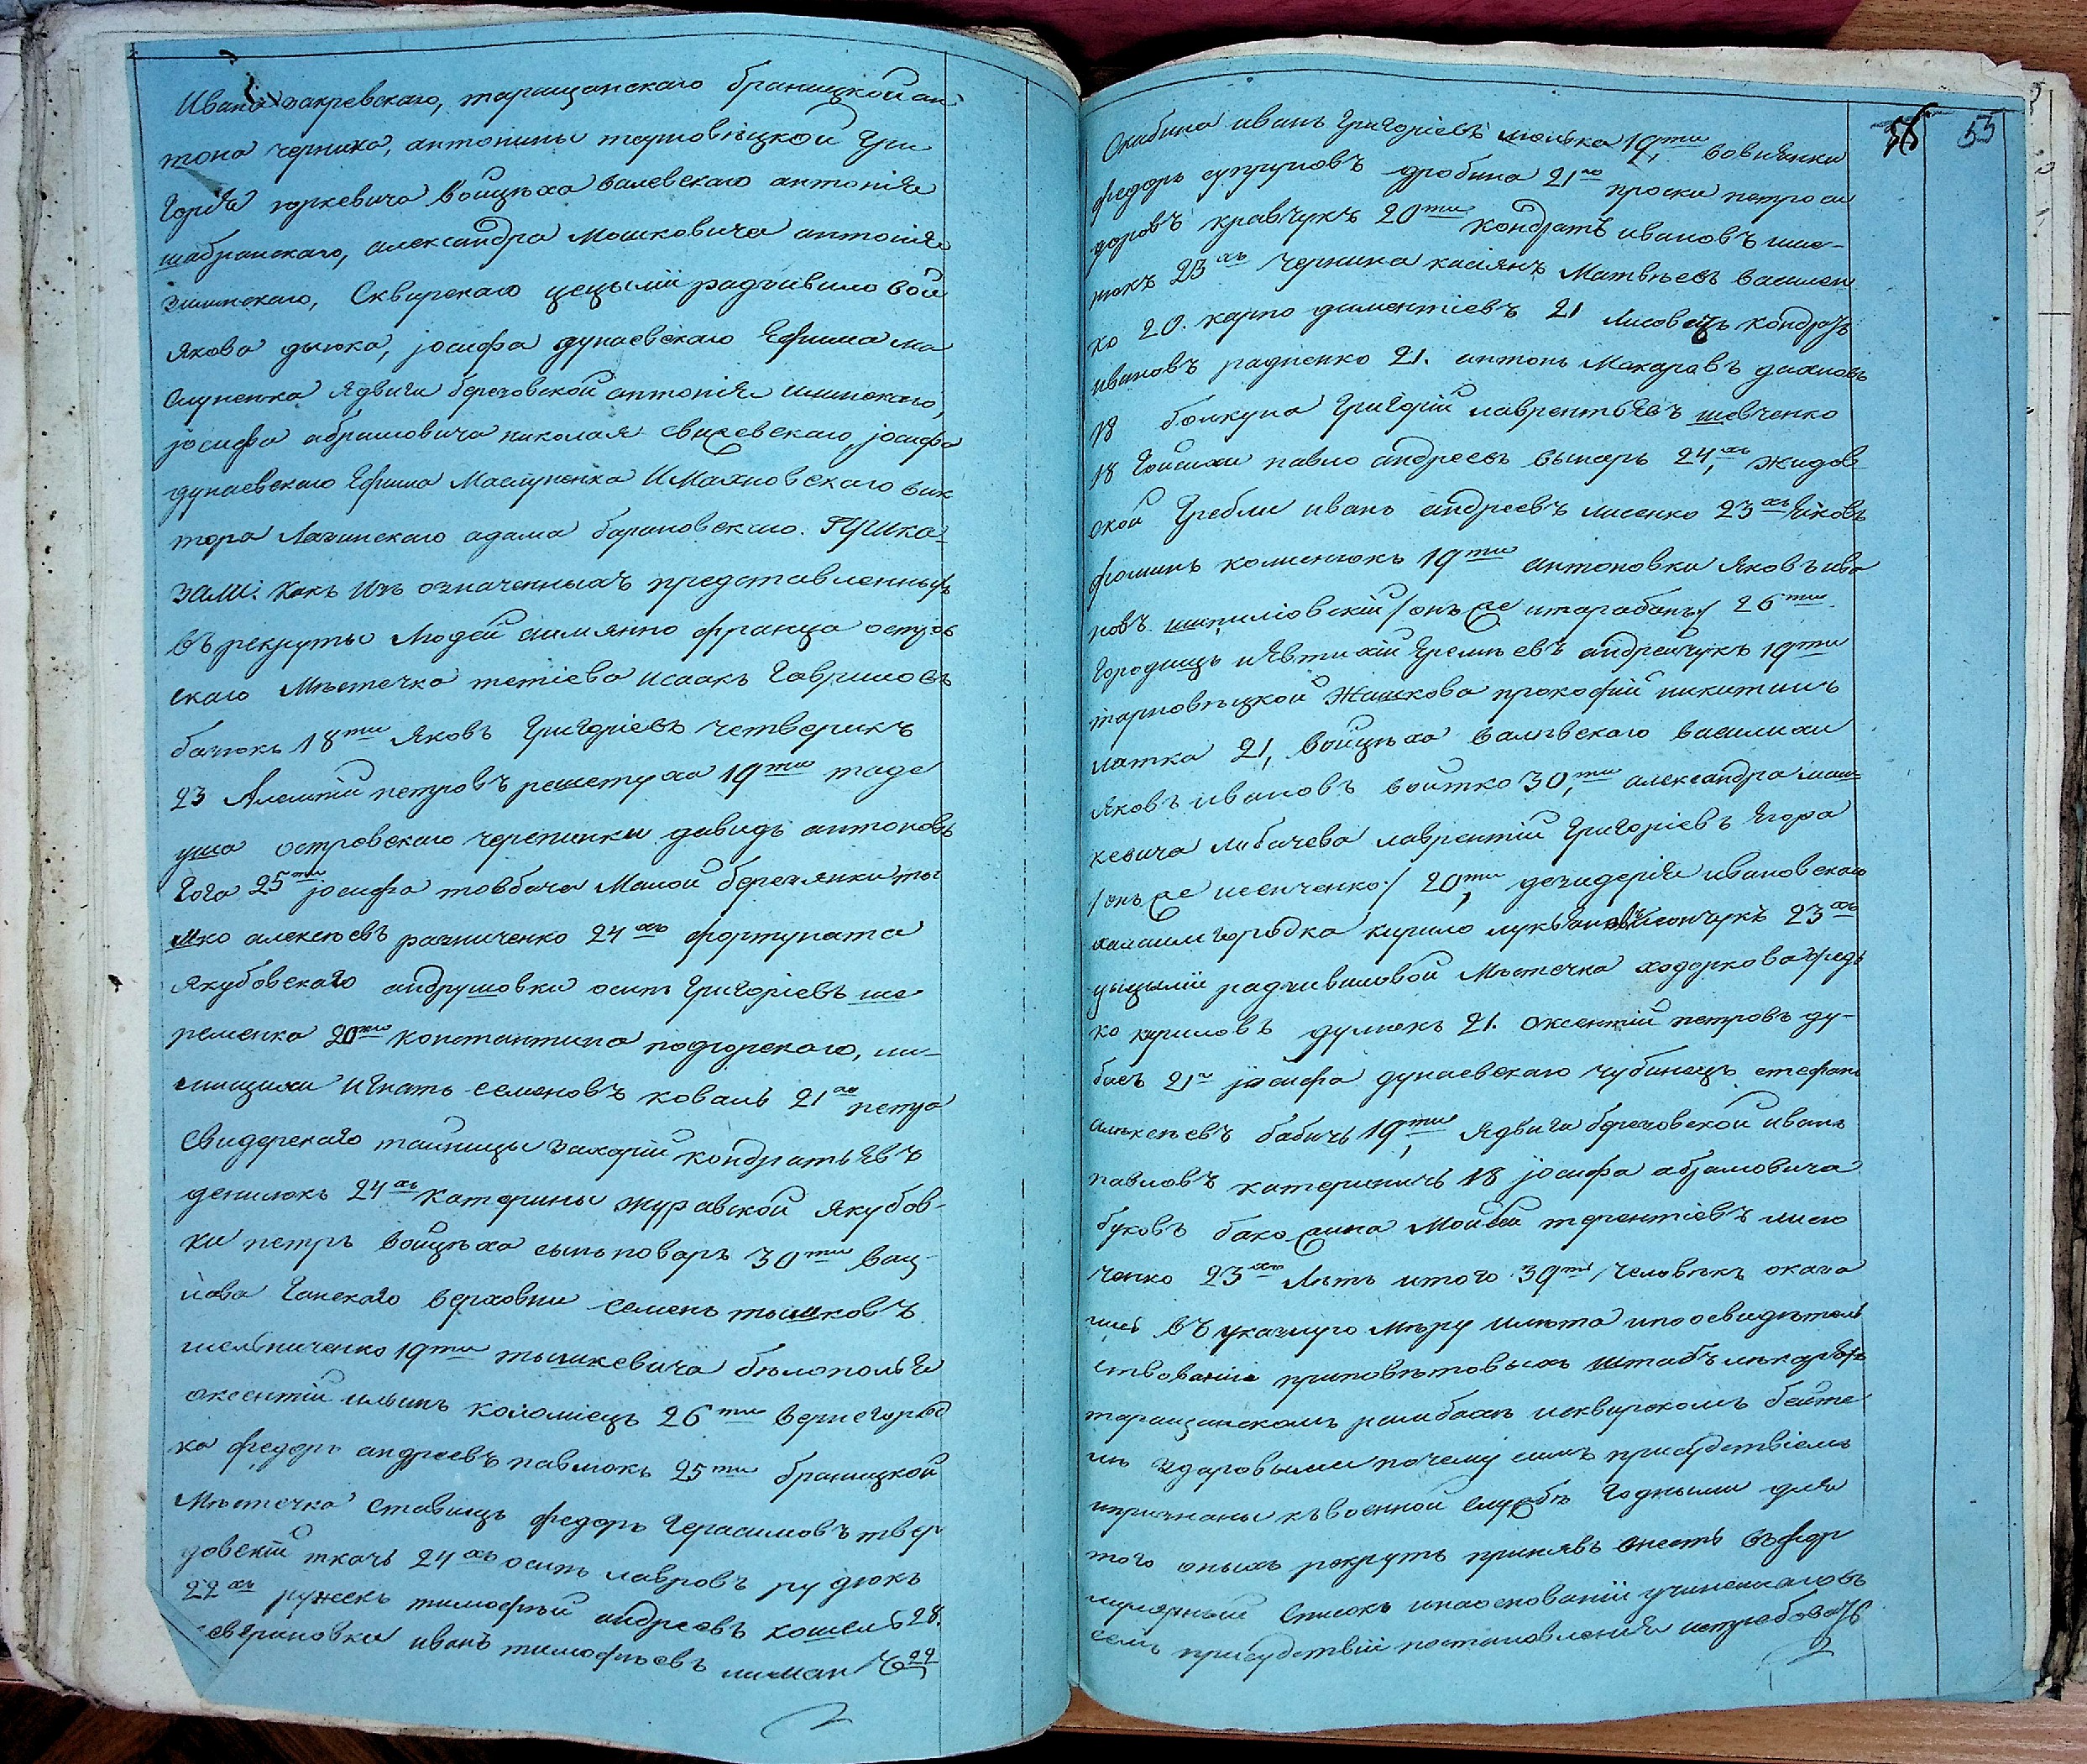 Ивана закревскаго, таращанскаго браницкой ан
тона черниха, антонины терновецкой Гри
горія юркевича Войцеха валевскаго антонія
шабранскаго, александра Мошковича антонія
зимискаго, Сквирскаго цецыліи радзивило вой
Якова дыюка, іосифа дунаевскаго Ефима ма
слуненка Ядвиги березовской антонія
іосифа абрамовича николая іосифа
дунаевскаго Ефима Маслуненка И Махновскаго вик
тора адама барановскаго. Прика
зали: какъ изъ означенныхъ представленныхъ
въ рекруты Людей аимянно франца остров
скаго Мѣстечка тетіева исаакъ Гавриловъ
бачюкъ 18ти Яковъ Григоріевъ четверикъ
23 Алексій петровъ решетуха 19ти таде
уша островскаго черепинки давидъ антоновъ
Гога 25ти іосифа товбича Малой березянки то
мко алексѣевъ разниченко 24хъ фортуната
Якубовскаго андрушовки осипъ Григоріевъ ше
ременка 20ти константина подгорскаго, ни
Игнатъ семеновъ коваль 21го петра
Свидерскаго тайницы захарій кондратьевъ
денилюкъ 24хъ катерины журавской Якубов-
ки петръ войцѣха сынъ поваръ 30ти вац-
лава Ганскаго верховни семенъ тышковъ
мельниченко 19ти тышкевича бѣлополья
оксентій ильинъ коломіецъ 26ти вернегород
ка федоръ андреевъ павлюкъ 25ти браницкой
Мѣстечка ставищъ федоръ Герасимовъ твер
довскій ткачъ 24хъ осипъ лавровъ рудюкъ
22хъ ружекъ тимофѣй андреевъ кошель 28.
северіновки иванъ тимофѣевъ 22
56 53
Скибина иванъ Григоріевъ 19ти, вовнянки
федоръ супруновъ дробина 21го проски петро си
доровъ кравчукъ 20ти кондратъ ивановъ ше-
23хъ Чернина касіянъ Матвѣевъ василен
ко 20. карпо диментіевъ 21 Лисовецъ кондратъ
ивановъ радченко 21. антонъ Макаровъ дахновъ
18 болкуна Григорій лаврентьевъ шевченко
18 павло андреевъ бынарь 24хъ, жидов
ской Гребли иванъ андреевъ лисенко 23хъ Яковъ
фоминъ 19ти антоновки Яковъ ива
новъ /онъ же итарабанъ/ 26ти
Городищъ иЕвтихій Еремѣевъ андрейчукъ 19ти
тарновецкой Жашкова прокофій никитинъ
латка 21, войцѣха валевскаго василихи
Яковъ ивановъ войтко 30,ти александра маш-
кевича Лобачева лаврентій Григоріевъ Егора
/онъ же исенченко/ 20,ти дезидерія ивановскаго
городка кирило лукьяновъ 23хъ
цецыліи радзивиловой Мѣстечка ходоркова федь
ко кириловъ 21. оксентій петровъ ду-
басъ 21го іосифа дунаевскаго чубинецъ стефанъ
алексѣевъ бабичь 19,ти Ядвиги березовской иванъ
павловъ катериничь 18 іосифа абрамовича
буковъ Мойсей терентіевъ лисо
ченко 23хъ Лѣтъ итого 39ти человѣкъ оказа
лись въ указную Мѣру илѣта ипоосвидѣтель
ствованіи приповѣтовыхъ штабъ лѣкаряхъ
таращанскомъ иСквирскомъ бейте
лѣ здоровыми почему симъ присудствіемъ
ипризнаны къвоенной службѣ годными для
того оныхъ рекрутъ принявъ внесть въ фор
мулярный списокъ инаоснованіи учиненнаго въ
семъ присудствіи постановленія истребовать